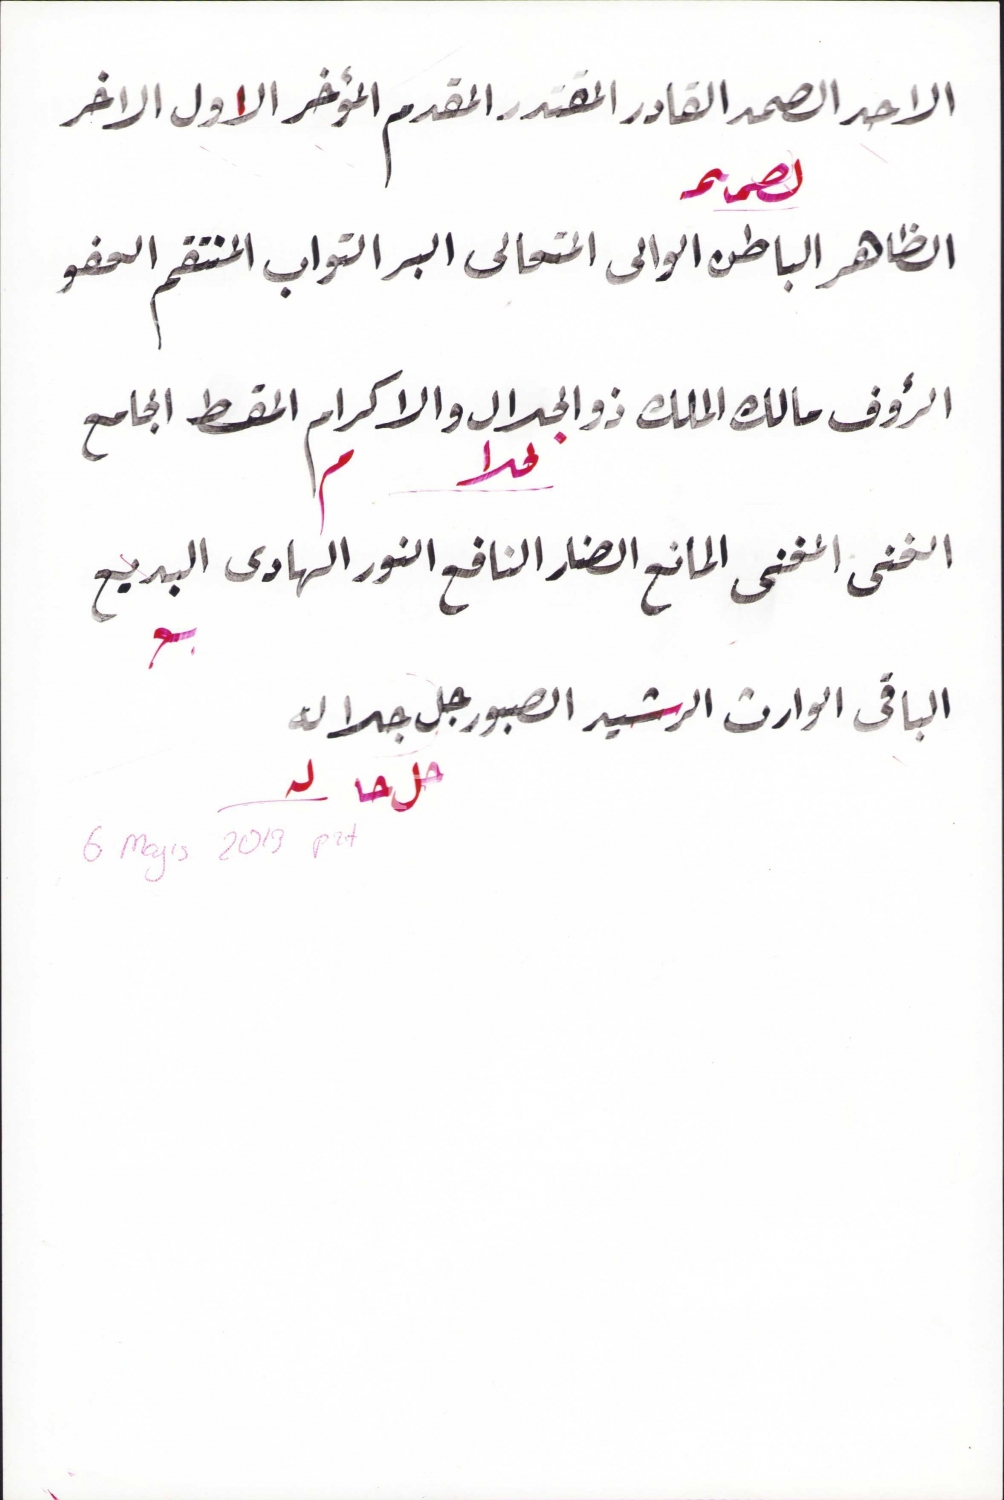 الاحد الصمد القادر المقتدر المقدم المؤخر الاول الاخر
لصمد
الظاهر الباطن الوالى المتعالى البر التواب المنتقم العفو
الرؤف مالك الملك ذو الجلال والاكرام المقسط الجامع
م
الغنى المغنى المانع الضار النافع النور الهادى البديع
الباقى الوارث الرشيد الصبور جل جلاله
جل جا له
6 Mayıs 2019 pzt